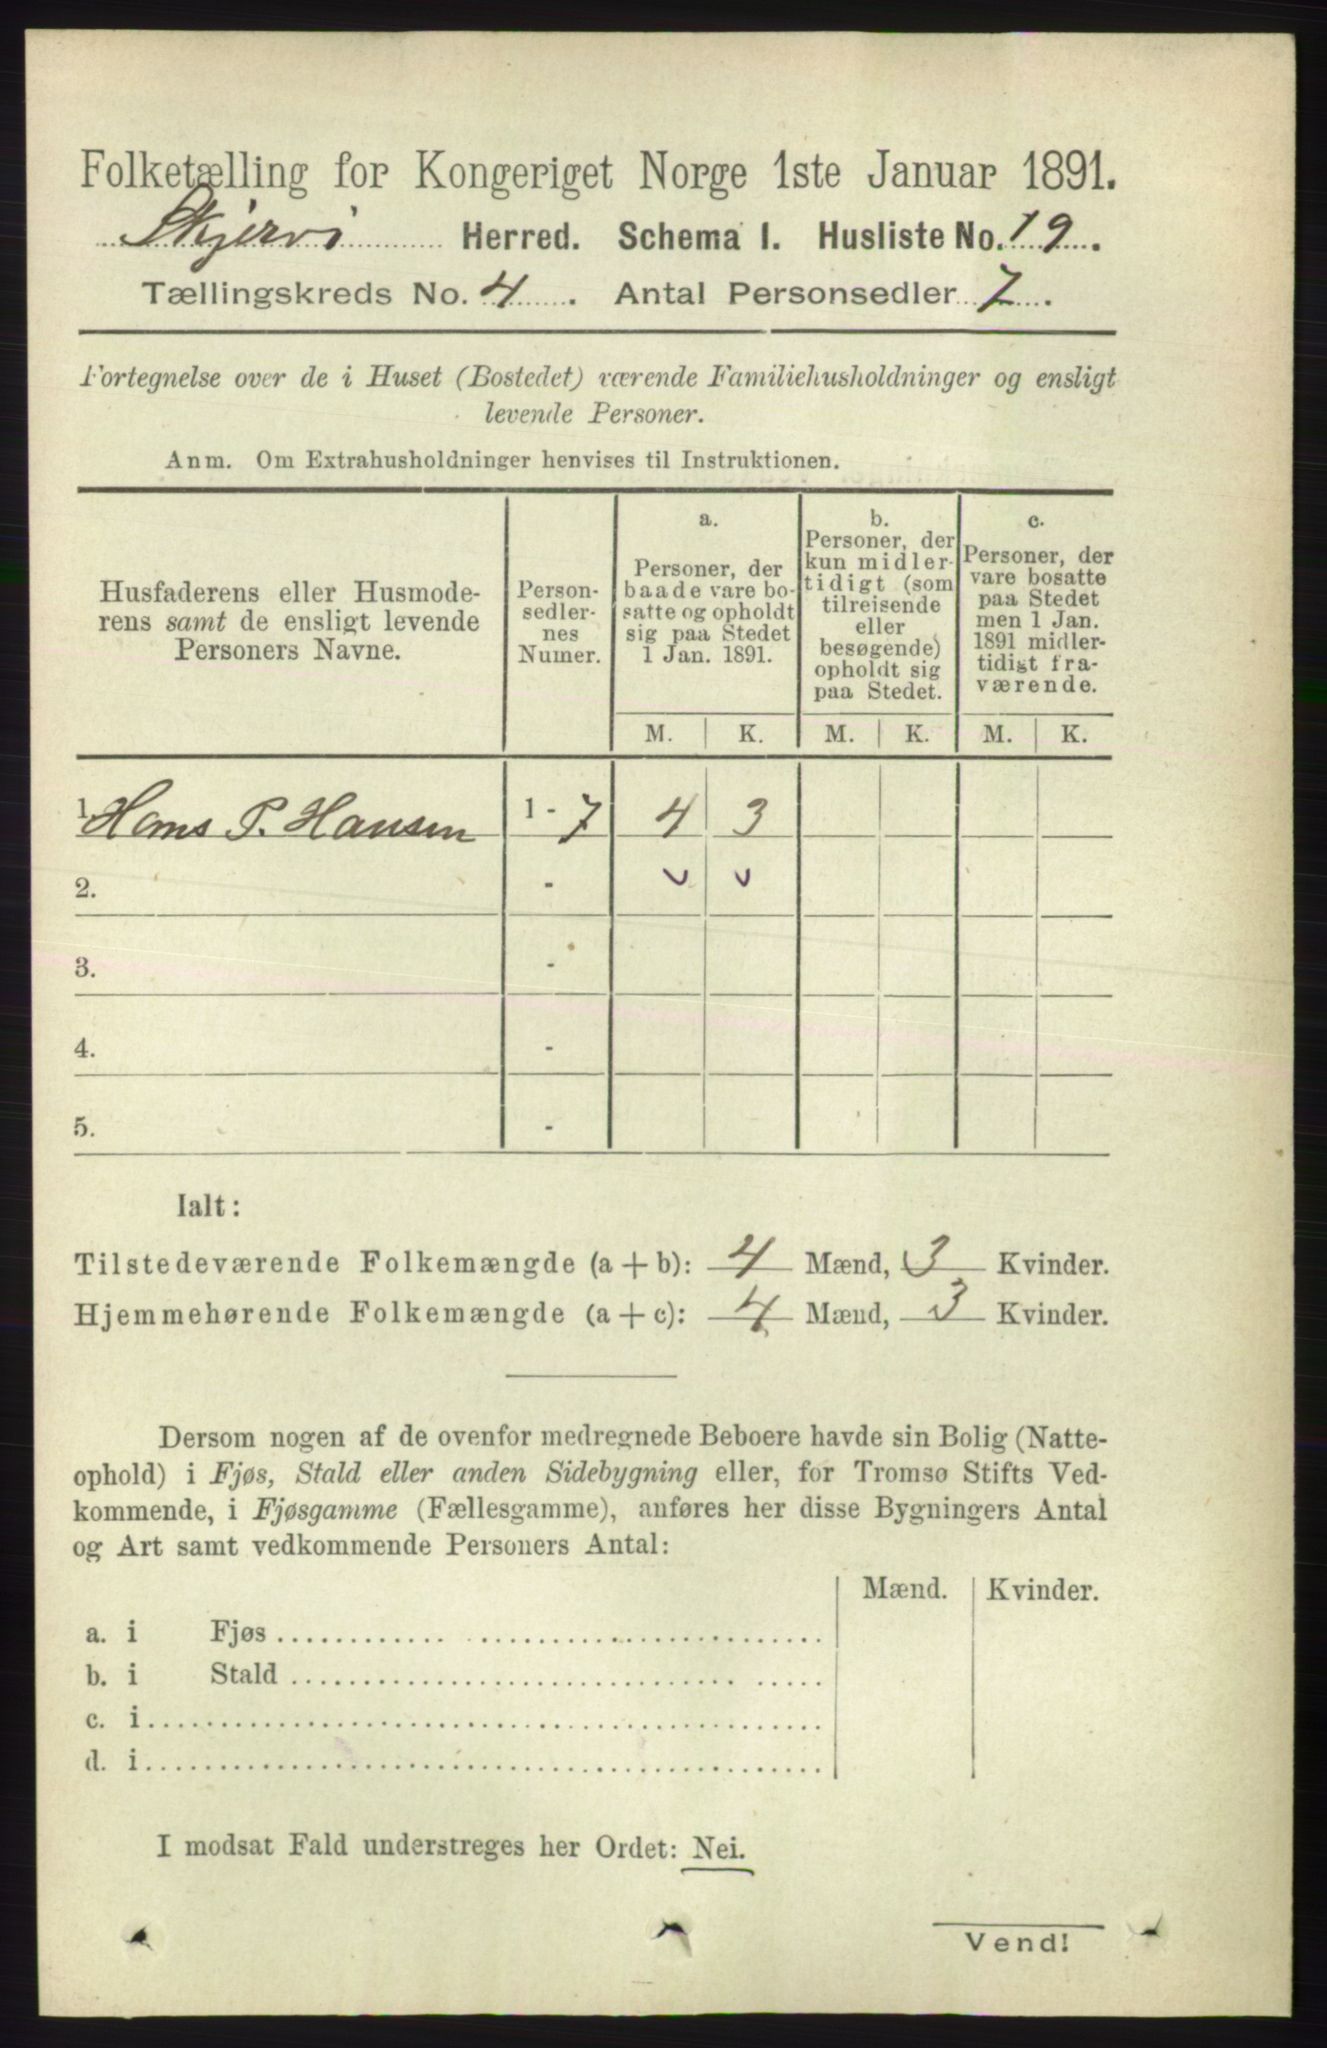 Folketælling for Kongeriget Norge 1ste Januar 1891.
Skjervø Herred. Schema I. Husliste No. 19.
Tællingskreds No. 4. Antal Personsedler 7.
Fortegnelse over de i Huset (Bostedet) værende Familiehusholdninger og ensligt
levende Personer.
Anm. Om Extrahusholdninger henvises til Instruktionen.
Husfaderens eller Husmode-
rens samt de ensligt levende
Personers Navne.
Person-
sedler-
nes
Numer.
a.
Personer, der
baade vare bo-
satte og opholdt
sig paa Stedet
1 Jan. 1891.
b.
Personer, der
kun midler-
tidigt (som
tilreisende
eller
besøgende)
opholdt sig
paa Stedet.
c.
Personer, der
vare bosatte
paa Stedet
men 1 Jan.
1891 midler-
tidigt fra-
værende.
M. K. M. K. M. K.
1. Hans P. Hansen 1 - 7 4 3
2. -
3. -
4. -
5. -
Ialt:
Tilstedeværende Folkemængde (a + b): 4 Mænd, 3 Kvinder.
Hjemmehørende Folkemængde (a + c): 4 Mænd, 3 Kvinder.
Dersom nogen af de ovenfor medregnede Beboere havde sin Bolig (Natte-
ophold) i Fjøs, Stald eller anden Sidebygning eller, for Tromsø Stifts Ved-
kommende, i Fjøsgamme (Fællesgamme), anføres her disse Bygningers Antal
og Art samt vedkommende Personers Antal:
Mænd. Kvinder.
a. i Fjøs
b. i Stald
c. i
d. i
I modsat Fald understreges her Ordet: Nei.
Vend!